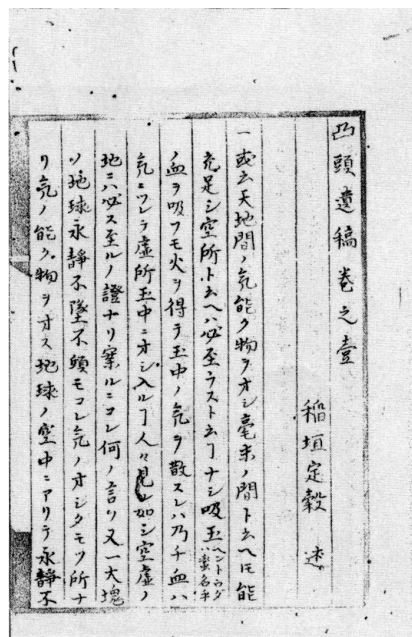 凸頭遺稿巻之壹
稲垣定穀 述
一或云天地間ノ気能ク物ヲオシ毫末ノ間ト云ヘㇳモ能
充足シ空所ト云ヘハ必至ラスト云ヿナシ吸玉ヘントウダハ蛮名乎
血ヲ吸フモ火ヲ得テ玉中ノ気ヲ散スレハ乃チ血ハ
気ニツレテ虚所玉中ニオシ入ルヿ人々見ル如シ空虚ノ
地ニハ必ス至ルノ證ナリ案ルニコレ何ノ言ソ又一大塊
ノ地球永静不墜不傾モコレ気ノオシタモツ所ナ
リ気ノ能ク物ヲオス地球ノ空中ニアリテ永静不